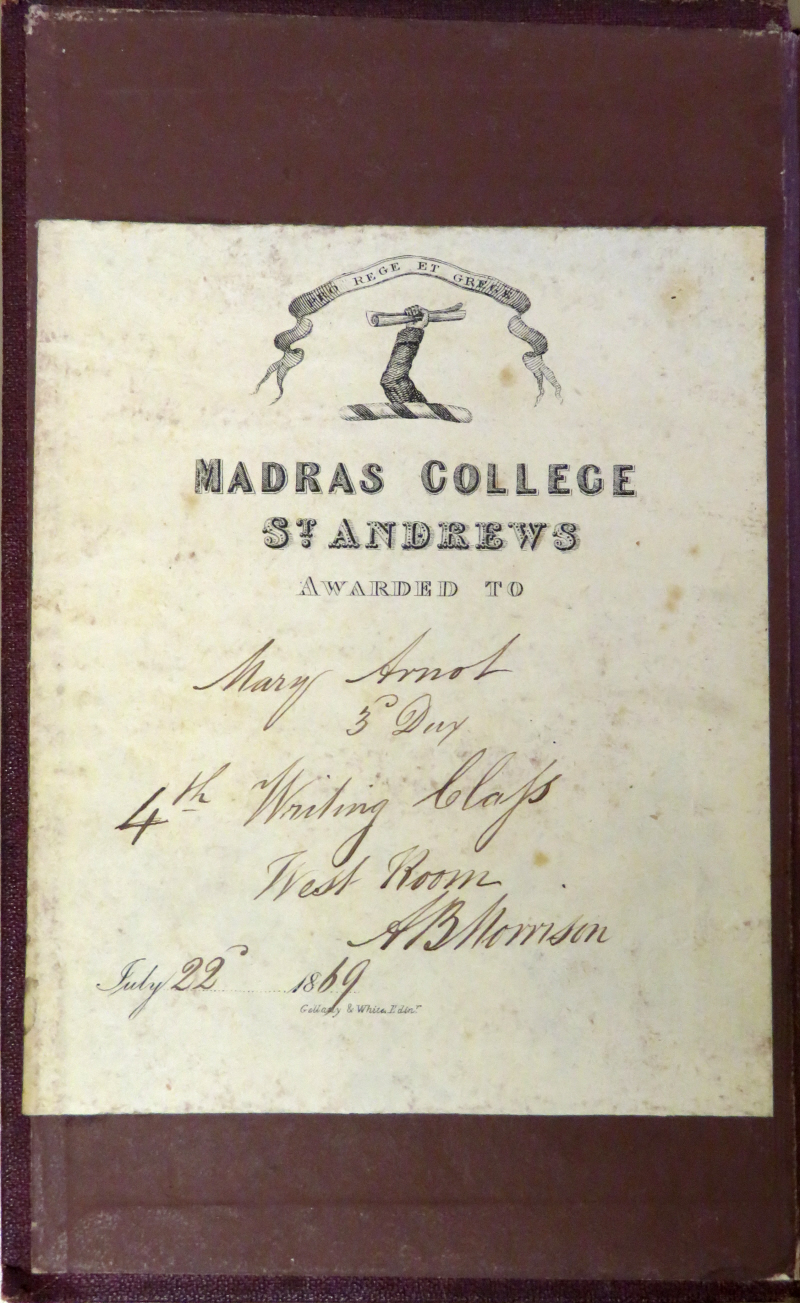 PRO REGE ET GREGE
MADRAS COLLEGE
ST ANDREWS
AWARDED TO
Mary Arnot
3d Dux
4th Writing Claſs
West Room
A B Morrison
July 22d 1869
& White Edinr